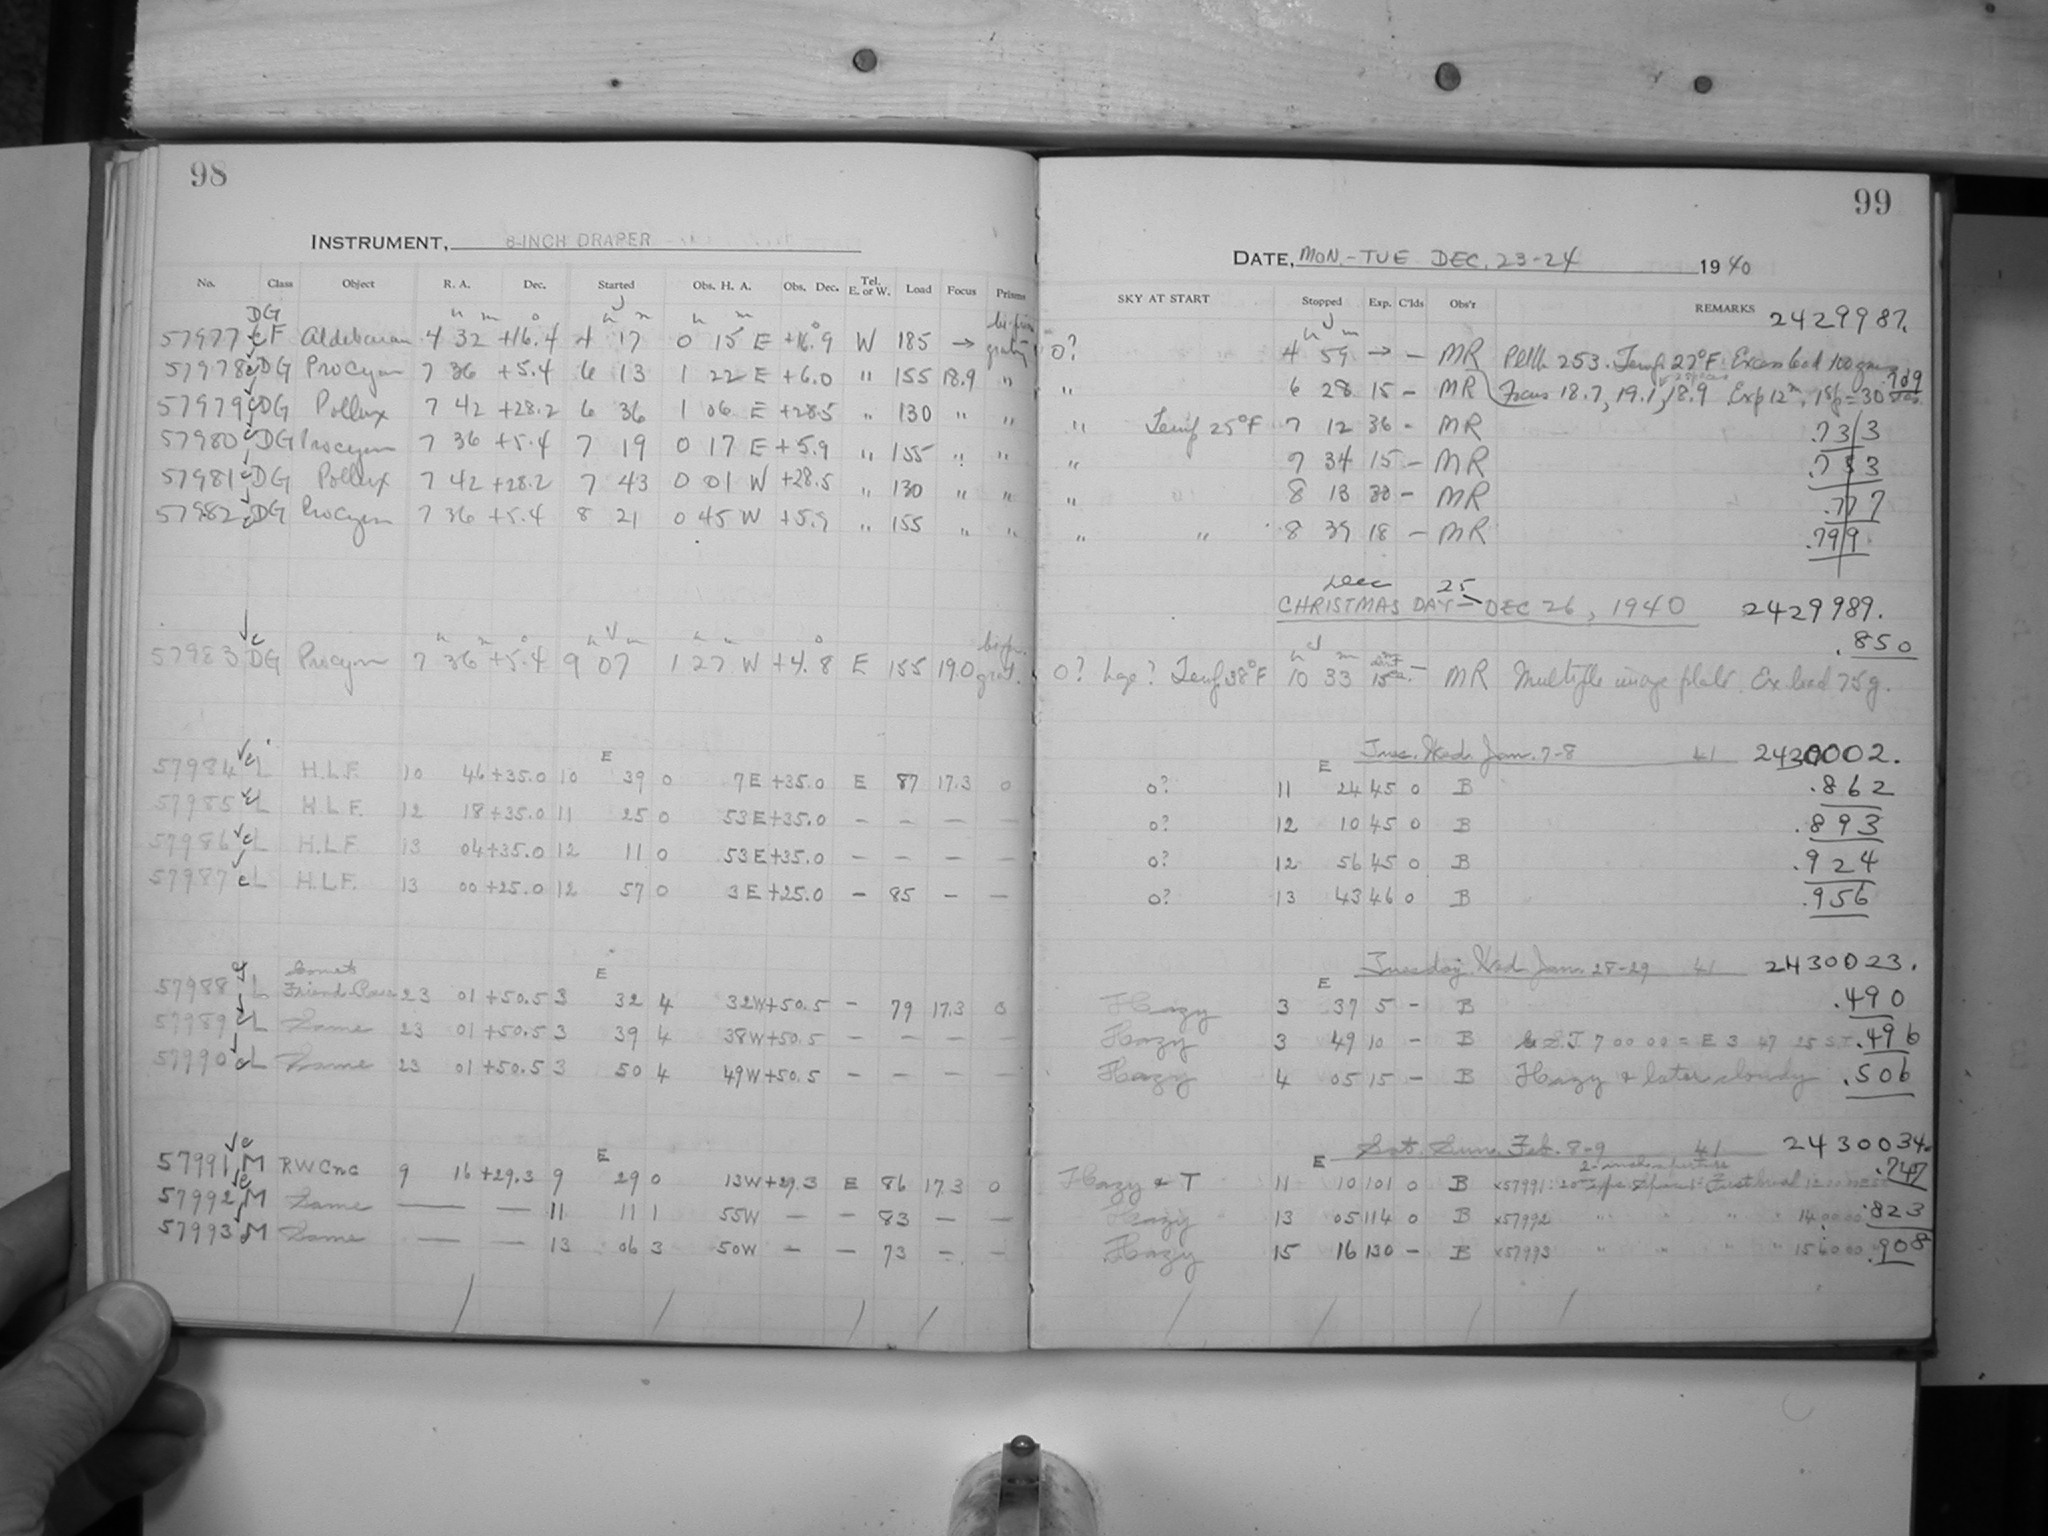 98
INSTRUMENT, 8-INCH DRAPER
No. Class Object R. A. Dec. Started Obs. H. A. Obs. Dec. Tel. E. or W. Load Focus Prisms
DG
57977 F Aldebaran 4 32 +16.4 4 17 0 15 E +16.9 W 185 →
57978 DG Procyon 7 36 +5.4 6 13 1 22 E +6.0 " 155 18.9 "
57979 DG Pollux 7 42 +28.2 6 36 1 06 E +28.5 " 130 " "
57980 DG Procyon 7 36 +5.4 7 19 0 17 E +5.9 " 155 " "
57981 DG Pollux 7 42 +28.2 7 43 0 01 W +28.5 " 130 " "
57982 DG Procyon 7 36 +5.4 8 21 0 45 W +5.9 " 155 " "
57983 DG Procyon 7 36 +5.4 9 07 1 27 W +4.8 E 155 19.0 grat.
E
57984 L H.L.F. 10 46 +35.0 10 39 0 7 E +35.0 E 87 17.3 0
57985 L H.L.F. 12 18 +35.0 11 25 0 53 E +35.0 — — — —
57986 L H.L.F. 13 04 +35.0 12 11 0 53 E +35.0 — — — —
57987 L H.L.F. 13 00 +25.0 12 57 0 3 E +25.0 — 85 — —
Comet
E
57988 L Friend-Reese 23 01 +50.5 3 32 4 32W +50.5 — 79 17.3 0
57989 L Same 23 01 +50.5 3 39 4 38W +50.5 — — — —
57990 L Same 23 01 +50.5 3 50 4 49W +50.5 — — — —
E
57991 M RW Cnc 9 16 +29.3 9 29 0 13W +29.3 E 86 17.3 0
57992 M Same — — 11 11 1 55W — — 83 — —
57993 M Same — — 13 06 3 50W — — 73 — —
99
DATE, MON.-TUE DEC. 23-24 1940
SKY AT START Stopped Exp. C'lds Obs'r REMARKS 2429987.
0? 4 59 → — MR 253. Temp 27°F. Excess load 100
" 6 28 15 — MR Focus 18.7, 19.1, 18.9 Exp 12m,
" Temp 25°F 7 12 36 - MR .733
" 7 34 15 — MR
" 8 13 30 — MR .777
" " 8 39 18 — MR .799
Dec 25
CHRISTMAS DAY — DEC 26, 1940 2429989.
.850
0? Temp 38°F 10 33 — MR Multiple image plate. Ex load 75g.
Tues. Wed. Jan. 7-8 41 2430002.
E
0? 11 24 45 0 B .862
0? 12 10 45 0 B .893
0? 12 56 45 0 B .924
0? 13 43 46 0 B .956
Tuesday Wed Jan. 28-29 41 2430023.
E
Hazy 3 37 5 — B .490
Hazy 3 49 10 — B 7 00 00 = E 3 47 25 ST .496
Hazy 4 05 15 — B Hazy & later cloudy .506
Sat. Sun. Feb. 8-9 41 2430034.
E
2-inch aperture .747
Hazy & T 11 10 101 0 B x57991:
Hazy 13 05 114 0 B x57992 " " " " 14 00 00 .823
Hazy 15 16 130 — B x57993 " " " " .908